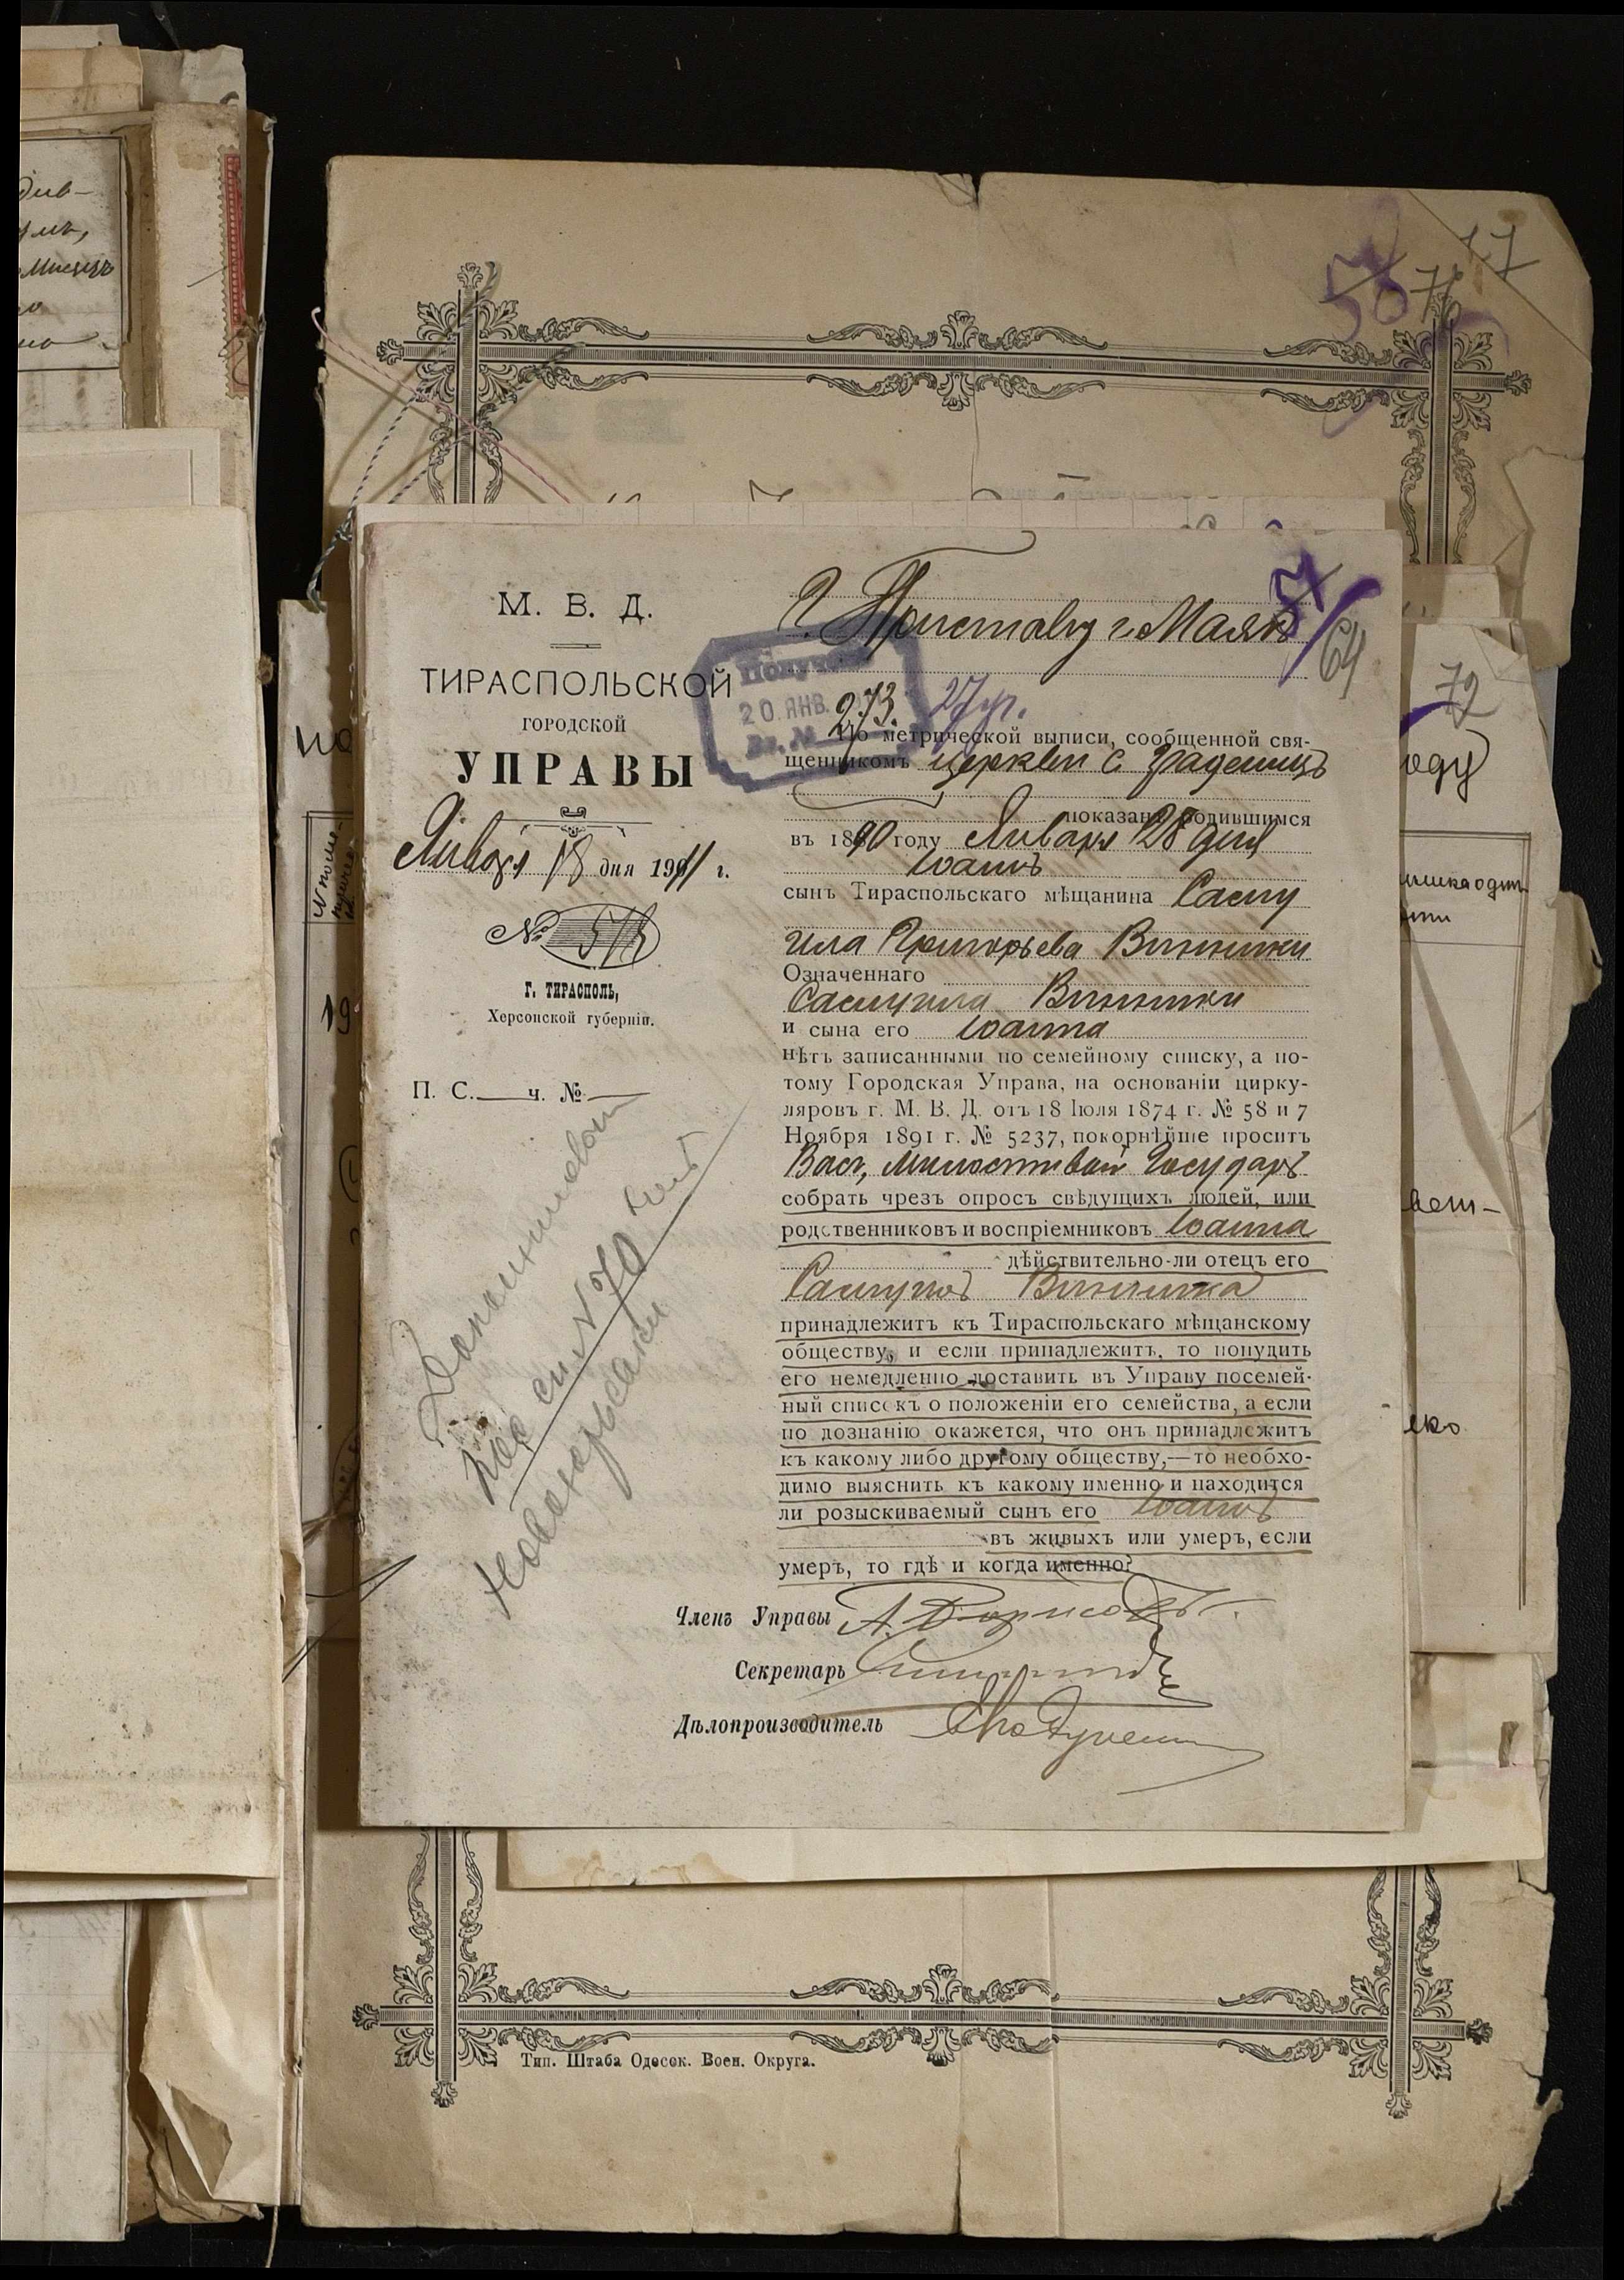 77
58
76
М. В. Д.
ТИРАСПОЛЬСКОЙ
ГОРОДСКОЙ
УПРАВЫ
Января 18 дня 1911 г.
№ 518
Г. ТИРАСПОЛЬ,
Херсонской губерніи.
П. С. ч. №
Г. Приставу г. Маякъ
64
20 ЯНВ.
Вх. №
273.
По метрической выписи, сообщенной свя-
щенникомъ церкви с. Граденицъ
показанъ родившимся
въ 1890 году Января 28 дня
Іоаннъ
сынъ Тираспольскаго мѣщанина Саму
ила Григорьева Винники
Означеннаго
Самуила Винники
и сына его Іоанна
нѣтъ записанными по семейному списку, а по-
тому Городская Управа, на основаніи цирку-
ляровъ г. М. В. Д. отъ 18 Іюля 1874 г. № 58 и 7
Ноября 1891 г. № 5237, покорнѣйше проситъ
Васъ, Милостивый Государь
собрать чрезъ опросъ свѣдущихъ людей, или
родственниковъ и воспріемниковъ Іоанна
дѣйствительно-ли отецъ его
Самуилъ Винника
принадлежитъ къ Тираспольскаго мѣщанскому
обществу, и если принадлежитъ, то понудить
его немедленно доставить въ Управу посемей-
ный списокъ о положеніи его семейства, а если
по дознанію окажется, что онъ принадлежитъ
къ какому либо другому обществу,—то необхо-
димо выяснить къ какому именно и находится
ли розыскиваемый сынъ его Іоаннъ
въ живыхъ или умеръ, если
умеръ, то гдѣ и когда именно?
Членъ Управы А. Борисовъ
Секретарь
Дѣлопроизводитель
72
Тип. Штаба Одесск. Воен. Округа.